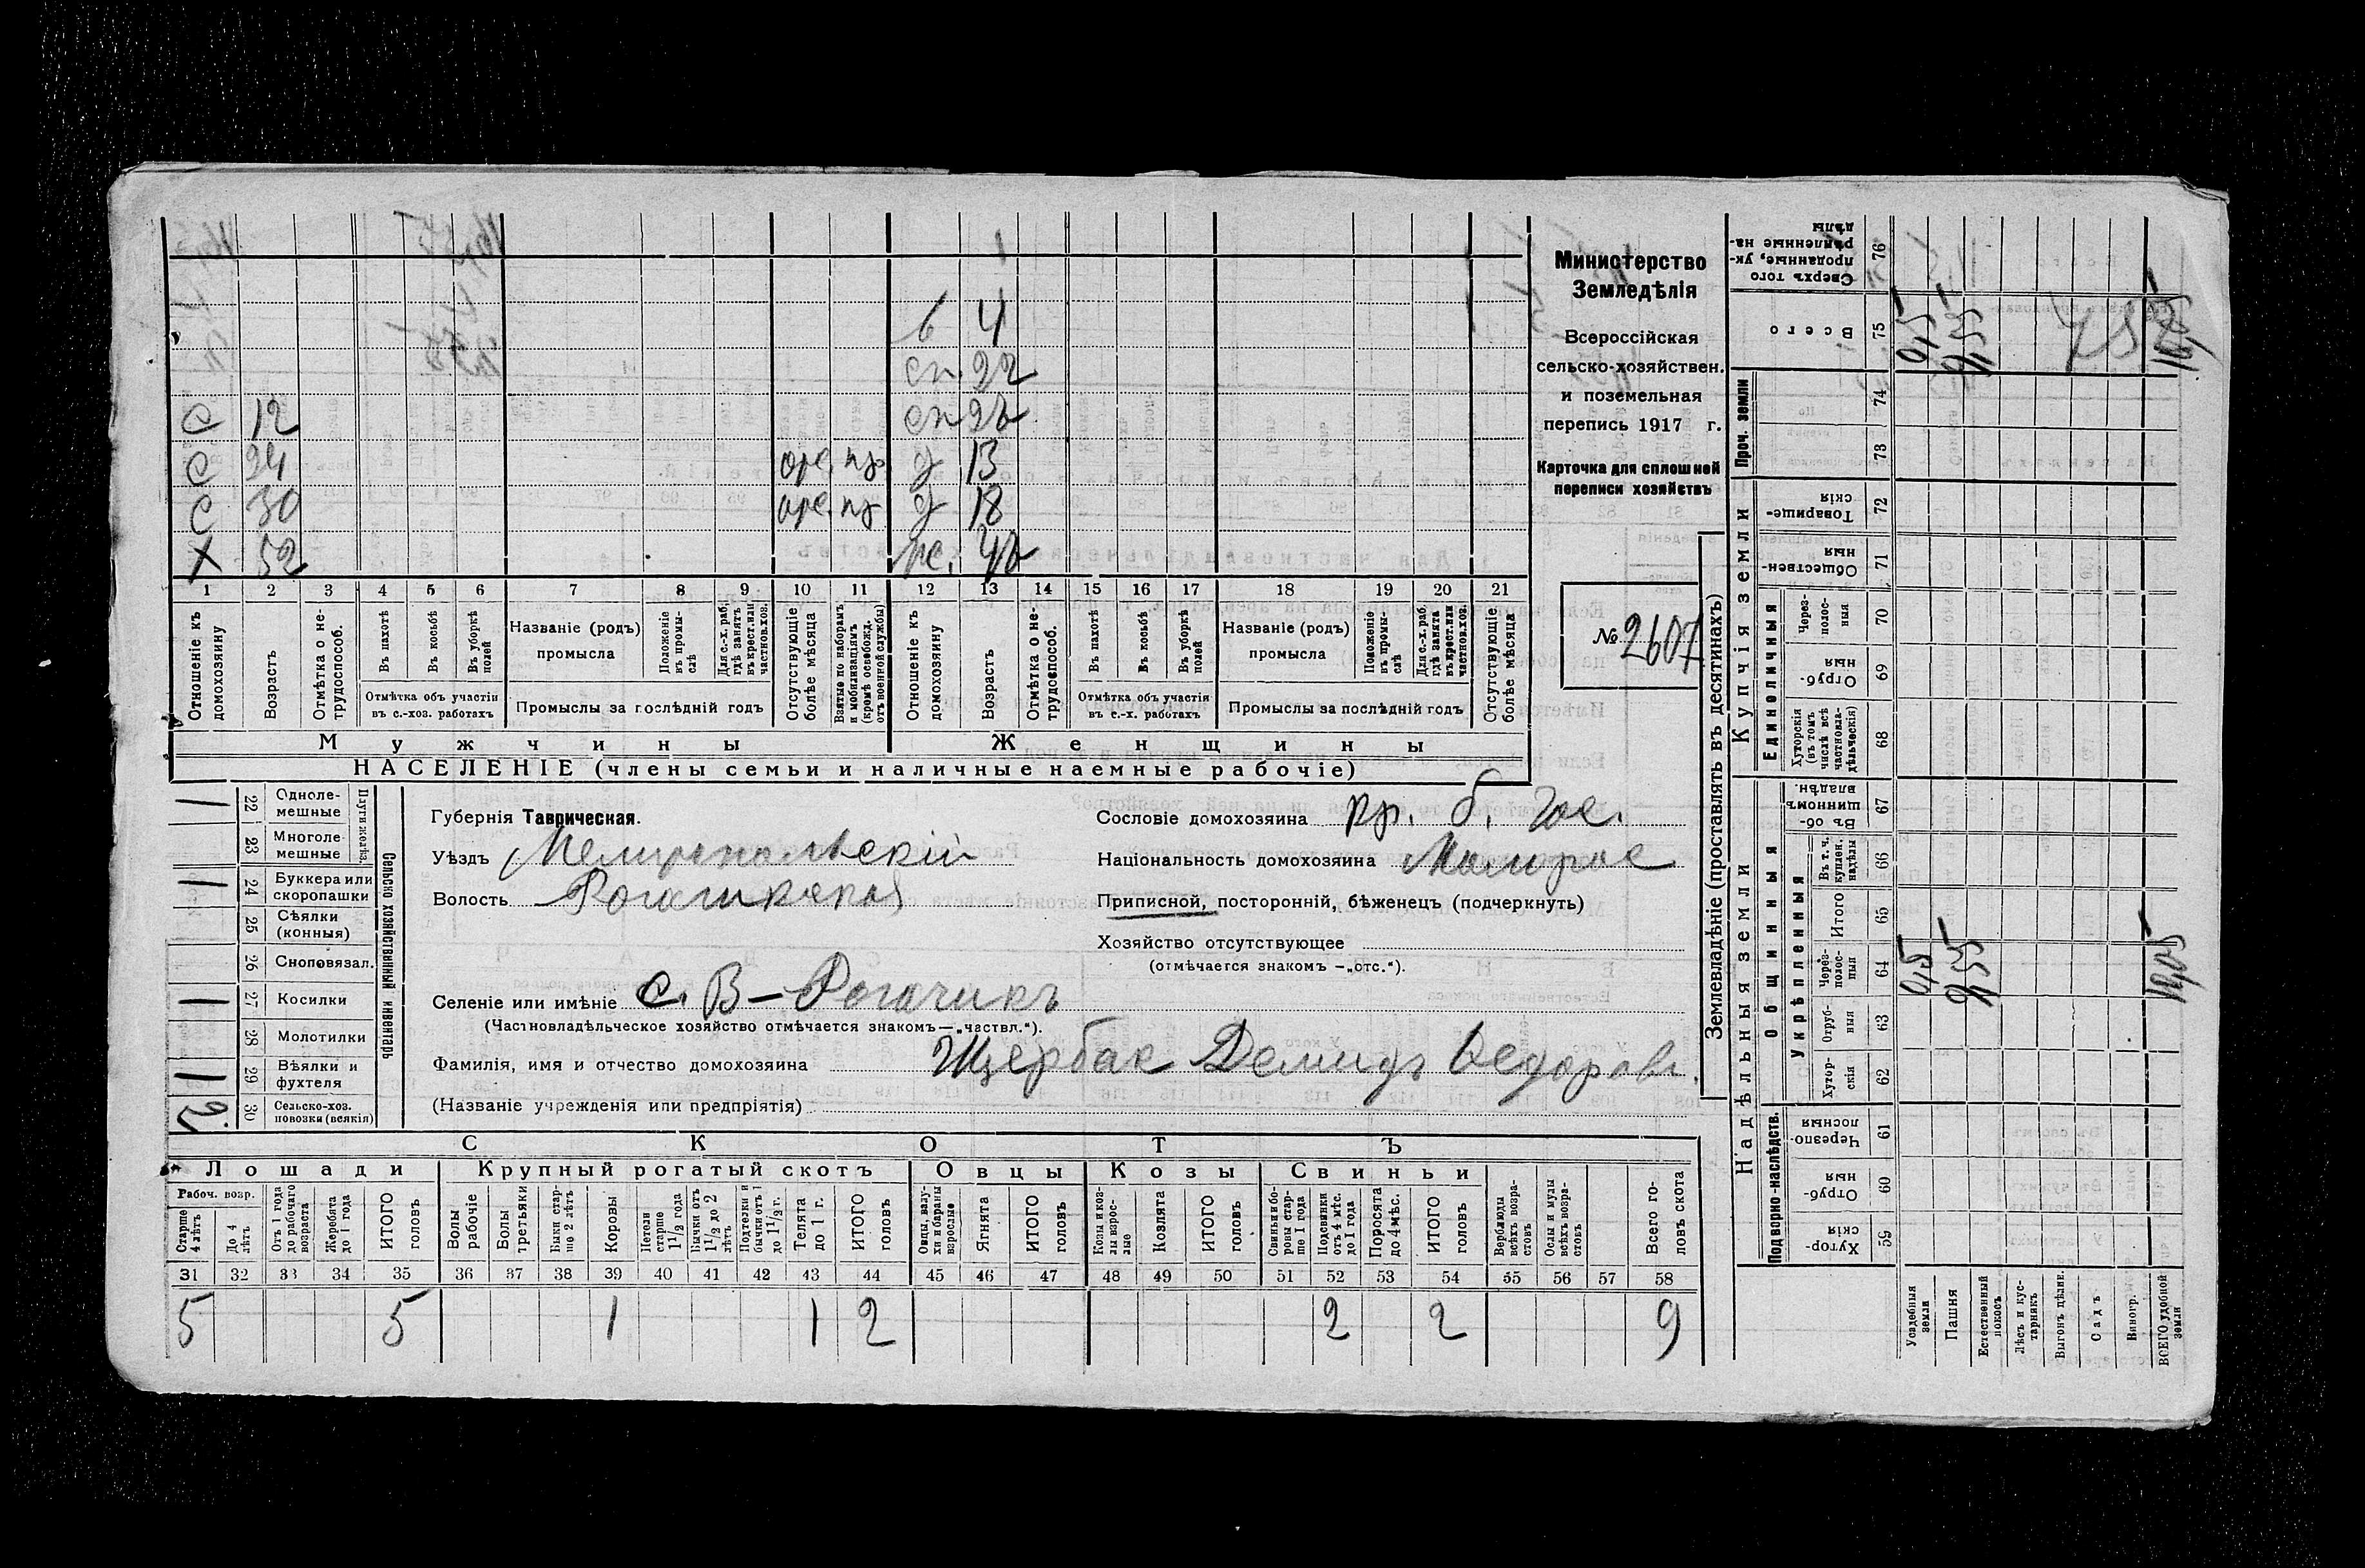 Министерство
Земледѣлія
Всероссійская
сельско-хозяйствен.
и поземельная
перепись 1917 г.
Карточка для сплошной
переписи хозяйствъ
№ 2607
6 4
сн. 22
С 12 сн 22
С 24 арм. пр д 13
С 30 арм. пр д 18
Х 52 ж. 48
1 2 3 4 5 6 7 8 9 10 11 12 13 14 15 16 17 18 19 20 21
Отношеніе къ домохозяину
Возрастъ
Отмѣтка о не-трудоспособ.
Въ пахотѣ
Въ косьбѣ
Въ уборкѣ полей
Отмѣтка объ участіи въ с.-хоз. работахъ
Названіе (родъ) промысла
Положеніе въ промы-слѣ
Для с.-х. раб. гдѣ занятъ въ крест. или частнов. хоз.
Промыслы за послѣдній годъ
Отсутствующіе болѣе мѣсяца
Взятые по наборамъ и мобилизаціямъ (кромѣ освобожд. отъ военной службы)
Отношеніе къ домохозяину
Возрастъ
Отмѣтка о не-трудоспособ.
Въ пахотѣ
Въ косьбѣ
Въ уборкѣ полей
Отмѣтка объ участіи въ с.-х. работахъ
Названіе (родъ) промысла
Положеніе въ промы-слѣ
Для с.-х. раб. гдѣ занята въ крест. или частнов. хоз.
Промыслы за послѣдній годъ
Отсутствующіе болѣе мѣсяца
Мужчины Женщины
НАСЕЛЕНІЕ (члены семьи и наличные наемные рабочіе)
Сельско хозяйственный инвентарь
Плуги желѣз.
1 22 Одноле-мешные
23 Многоле-мешные
1 24 Буккера или скоропашки
25 Сѣялки (конныя)
26 Сноповязал.
1 27 Косилки
28 Молотилки
1 29 Вѣялки и фухтеля
2 30 Сельско-хоз. повозки (всякія)
Губернія Таврическая.
Уѣздъ Мелитопольскій
Волость Рогачикская
Сословіе домохозяина кр. б. гос.
Національность домохозяина Малорос
Приписной, посторонній, бѣженецъ (подчеркнуть)
Хозяйство отсутствующее
(отмѣчается знакомъ —„отс.“).
Селеніе или имѣніе с. В-Рогачикъ
(Частновладѣльческое хозяйство отмѣчается знакомъ—„частвл.“).
Фамилія, имя и отчество домохозяина Щербак Демидъ Ѳедоров.
(Названіе учрежденія или предпріятія)
СКОТЪ
Лошади Крупный рогатый скотъ Овцы Козы Свиньи
Рабоч. возр.
Старше 4 лѣтъ
До 4 лѣтъ
Отъ 1 года до рабочаго возраста
Жеребята до 1 года
ИТОГО головъ
Волы рабочіе
Волы третьяки
Быки стар-ше 2 лѣтъ
Коровы
Нетели старше 1½ года
Бычки отъ 1½ до 2 лѣтъ
Подтелки и бычки отъ 1 до 1½ г.
Телята до 1 г.
ИТОГО головъ
Овцы, валу-хи и бараны взрослые
Ягнята
ИТОГО головъ
Козы и коз-лы взрос-лые
Козлята
ИТОГО головъ
Свиньи и бо-ровы стар-ше 1 года
Подсвинки отъ 4 мѣс. до 1 года
Поросята до 4 мѣс.
ИТОГО головъ
Верблюды всѣхъ возра-стовъ
Ослы и мулы всѣхъ возра-стовъ
Всего го-ловъ скота
31 32 33 34 35 36 37 38 39 40 41 42 43 44 45 46 47 48 49 50 51 52 53 54 55 56 57 58
5 5 1 1 2 2 2 9
Землевладѣніе (проставлять въ десятинахъ)
Сверхъ того проданные, ук-рѣпленные на-дѣлы 76
Всего 75 0,5 9,55 10,05
Проч. земли
74
73
Купчія земли
Товарище-скія 72
Обществен-ныя 71
Единоличныя
Через-полос-ныя 70
Отруб-ныя 69
Хуторскія (въ томъ числѣ всѣ частновла-дѣльческія) 68
Надѣльныя земли
Общинныя
Въ об-щинномъ владѣн. 67
Укрѣпленныя
Въ т. ч. куплен. надѣлы 66
Итого 65
Через-полос-ныя 64 0,5 9,55 10,05
Отруб-ныя 63
Хутор-скія 62
Подворно-наслѣдств.
Черезпо-лосныя 61
Отруб-ныя 60
Хутор-скія 59
Усадебныя земли
Пашня
Естественный покосъ
Лѣсъ и кус-тарникъ
Выгонъ цѣлин.
Садъ
Виногр.
ВСЕГО удобной земли